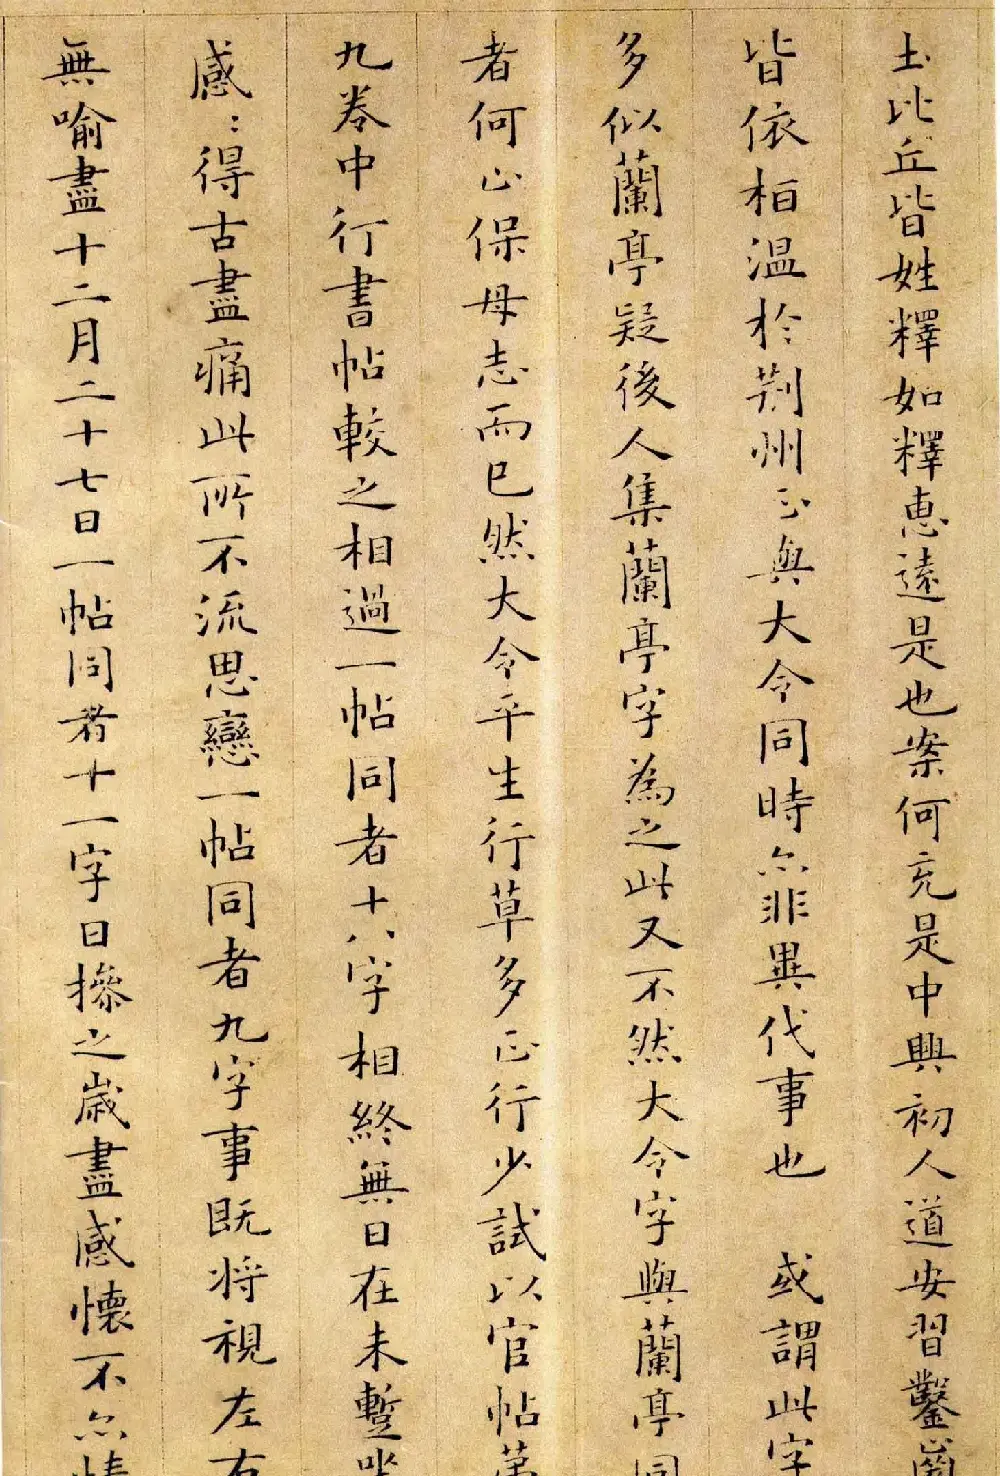 土比丘皆姓釋如釋惠遠是也案何充是中興初人道安習鑿齒
皆依桓温於荆州正與大令同時亦非異代事也 或謂此字
多似蘭亭疑後人集蘭亭字為之此又不然大令字與蘭亭同
者何止保母志而已然大令平生行草多正行少試以官帖第
九卷中行書帖較之相過一帖同者十八字相終無日在未蹔坐
感〻得古盡痛此所不流思戀一帖同者九字事既将視左右
無喻盡十二月二十七日一帖同者十一字日摻之歳盡感懷不亦情